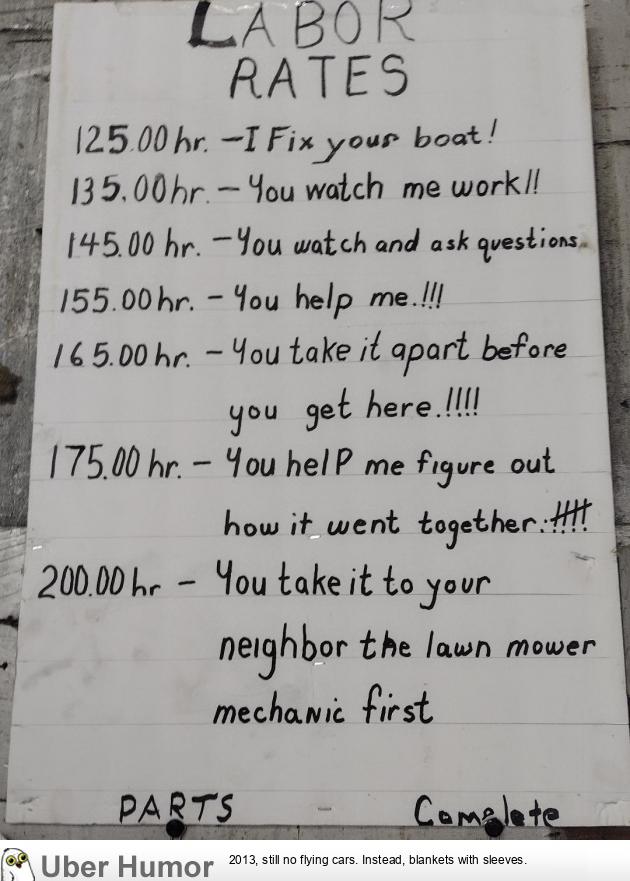 LABOR
RATES
125.00 hr. - I Fix your boat!
135.00 hr. - You watch me work!!
145.00 hr. - You watch and ask questions.
155.00 hr. - You help me.!!!
165.00 hr. - You take it apart before
you get here.!!!!
175.00 hr. - You help me figure out
how it went together.!!!!!
200.00 hr - You take it to your
neighbor the lawn mower
mechanic first
PARTS - Complete
Uber Humor 2013, still no flying cars. Instead, blankets with sleeves.